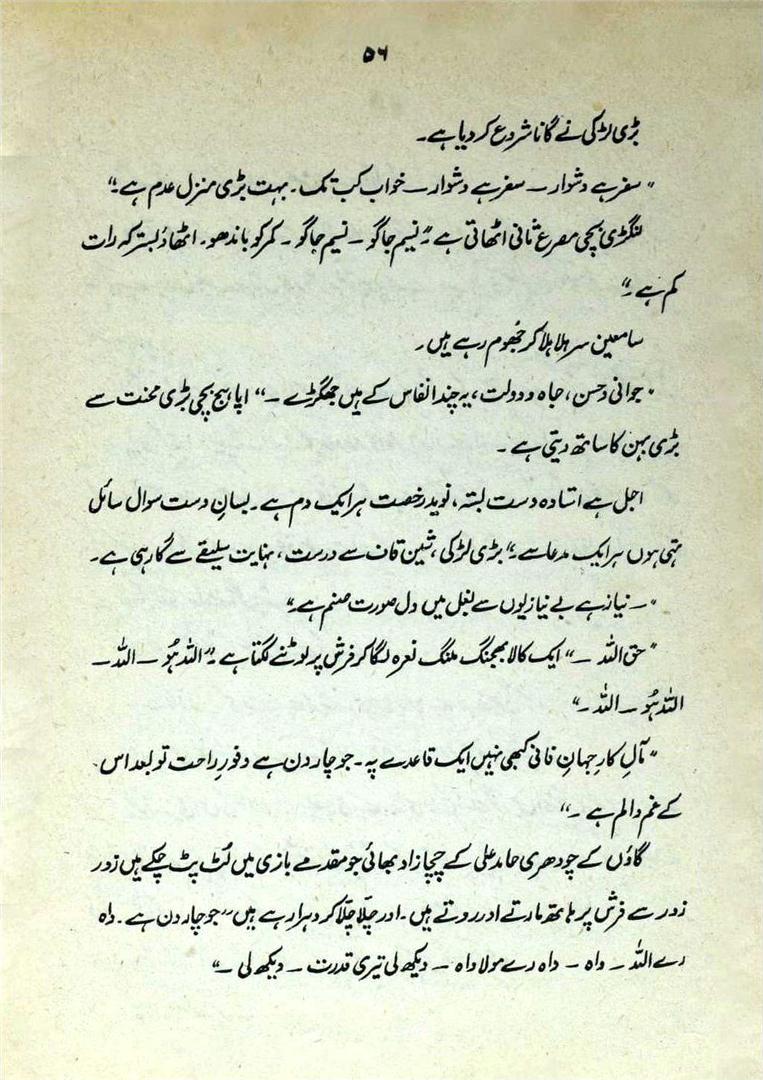 ۵۶
بڑی لڑکی نے گانا شروع کر دیا ہے۔
" سفر ہے دشوار ــ سفر ہے دشوار ــ خواب کب تک۔ بہت بڑی منزل عدم ہے۔"
لنگڑی بچی مصرع ثانی اٹھاتی ہے "نسیم جاگو ــ نسیم جاگو ۔ کمر کو باندھو۔ اٹھاؤ بستر کہ رات
کم ہے۔"
سامعین سر ہلا ہلا کر جھوم رہے ہیں۔
" جوانی و حسن، جاہ و دولت، یہ چند انفاس کے ہیں جھگڑے ــ" اپاہج بچی بڑی محنت سے
بڑی بہن کا ساتھ دیتی ہے ۔
اجل ہے استادہ دست بستہ، نوید رخصت ہر ایک دم ہے۔ بسانِ دست سوال سائل
تہی ہوں ہر ایک مدعا سے۔" بڑی لڑکی، شین قاف سے درست، نہایت سلیقے سے گا رہی ہے۔
" ــ نیاز ہے بے نیازیوں سے بغل میں دل صورت صنم ہے۔"
" حق اللہ ــ" ایک کالا بھجنگ ملنگ نعرہ لگا کر فرش پر لوٹنے لگتا ہے۔ "اللہ ہُو ــ اللہ ــ
اللہ ہُو ــ اللہ ــ"
" مآلِ کارِ جہانِ فانی کبھی نہیں ایک قاعدے پہ۔ جو چار دن ہے وفورِ راحت تو بعد اس
کے غم و الم ہے ۔"
گاؤں کے چودھری حامد علی کے چچا زاد بھائی جو مقدمے بازی میں لُٹ پٹ چکے ہیں زور
زور سے فرش پر ہاتھ مارتے اور روتے ہیں۔ اور چلّا چلّا کر دہرا رہے ہیں " جو چار دن ہے۔ واہ
رے اللہ ــ واہ ــ واہ رے مولا واہ ــ دیکھ لی تیری قدرت ــ دیکھ لی ــ"